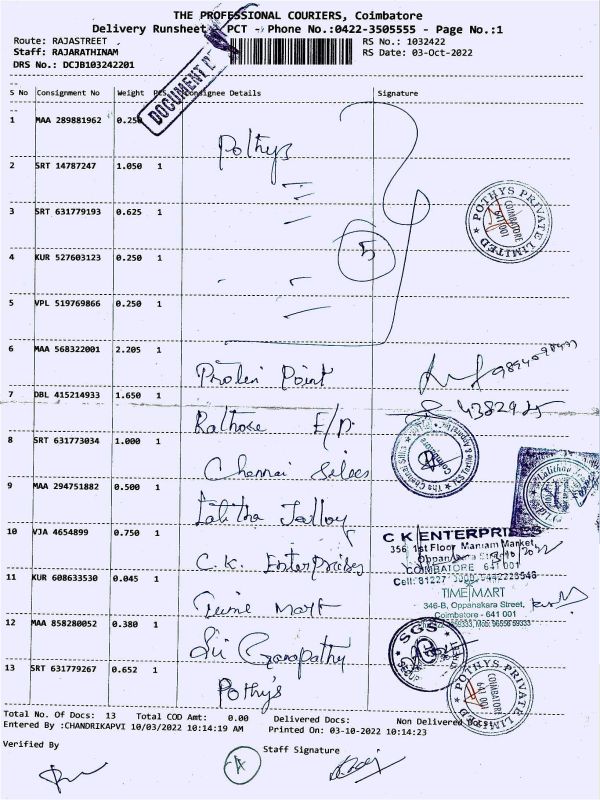 THE PROFESSIONAL COURIERS, Coimbatore
Delivery Runsheet - PCT - Phone No.:0422-3505555 - Page No.:1
Route: RAJASTREET
RS No.: 1032422
Staff: RAJARATHINAM
RS Date: 03-Oct-2022
DRS No.: DCJB103242201
DOCUMENT
S No Consignment No Weight PCS Consignee Details Signature
1 MAA 289881962 0.250
Pothys
2 SRT 14787247 1.050 1
3 SRT 631779193 0.625 1
POTHYS PRIVATE LIMITED
COIMBATORE
641 001
4 KUR 527603123 0.250 1
5
5 VPL 519769866 0.250 1
6 MAA 568322001 2.205 1
Point
7 DBL 415214933 1.650 1
Rathore E/P.
8 SRT 631773034 1.000 1
Chennai Silks
The Chennai Silks
Coimbatore
9 MAA 294751882 0.500 1
Lalitha
10 VJA 4654899 0.750 1
C.K. Enterprises
C K ENTERPRISES
356 1st Floor Maniam Market,
COIMBATORE 641 001
11 KUR 608633530 0.045 1
Time Mart
TIME MART
346-B, Oppanakara Street,
Coimbatore - 641 001
12 MAA 858280052 0.380 1
Sri Ganapathy
SGS
13 SRT 631779267 0.652 1
Pothy's
POTHYS PRIVATE LIMITED
COIMBATORE
641 001
Total No. Of Docs: 13 Total COD Amt: 0.00 Delivered Docs: Non Delivered Docs:
Entered By :CHANDRIKAPVI 10/03/2022 10:14:19 AM Printed On: 03-10-2022 10:14:23
Verified By
Staff Signature